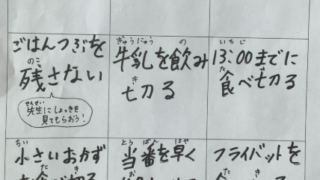 ごはんつぶを
残さない
のこ
先生にしょっきを
せんせい
見てもらおう!
牛乳を飲み
ぎゅうにゅう の
切る
き
13:00までに
いちじ
食べ切る
た き
小さいおかず
ちい
当番を早く
とうばん はや
フライバットを